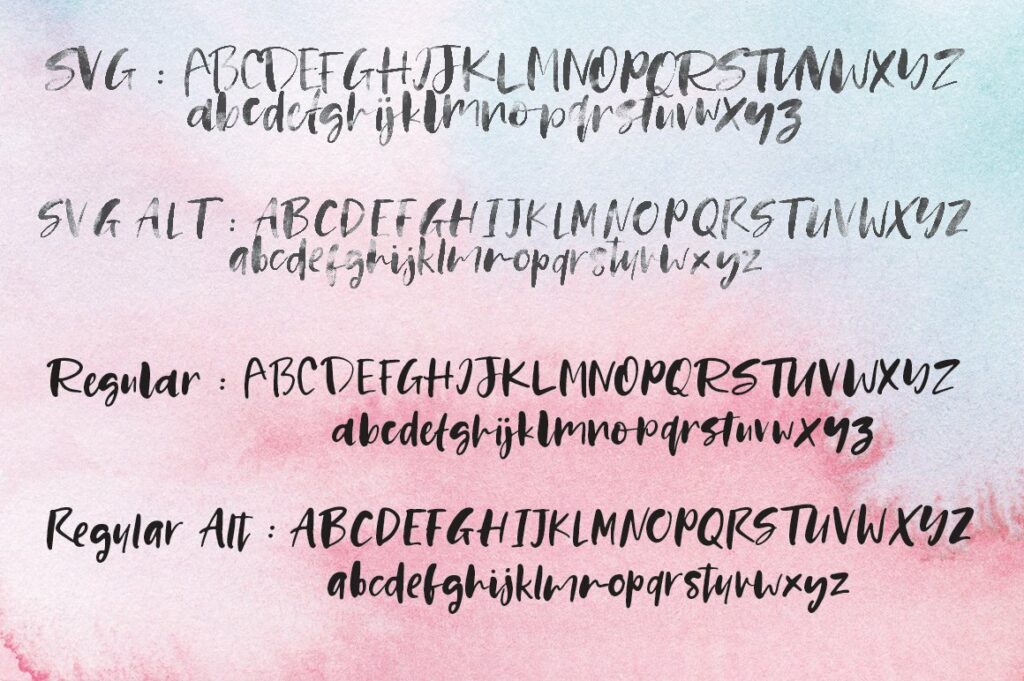 SVG : ABCDEFGHIJKLMNOPQRSTUVWXYZ
abcdefghijklmnopqrstuvwxyz
SVG ALT : ABCDEFGHIJKLMNOPQRSTUVWXYZ
abcdefghijklmnopqrstuvwxyz
Regular : ABCDEFGHIJKLMNOPQRSTUVWXYZ
abcdefghijklmnopqrstuvwxyz
Regular Alt : ABCDEFGHIJKLMNOPQRSTUVWXYZ
abcdefghijklmnopqrstuvwxyz